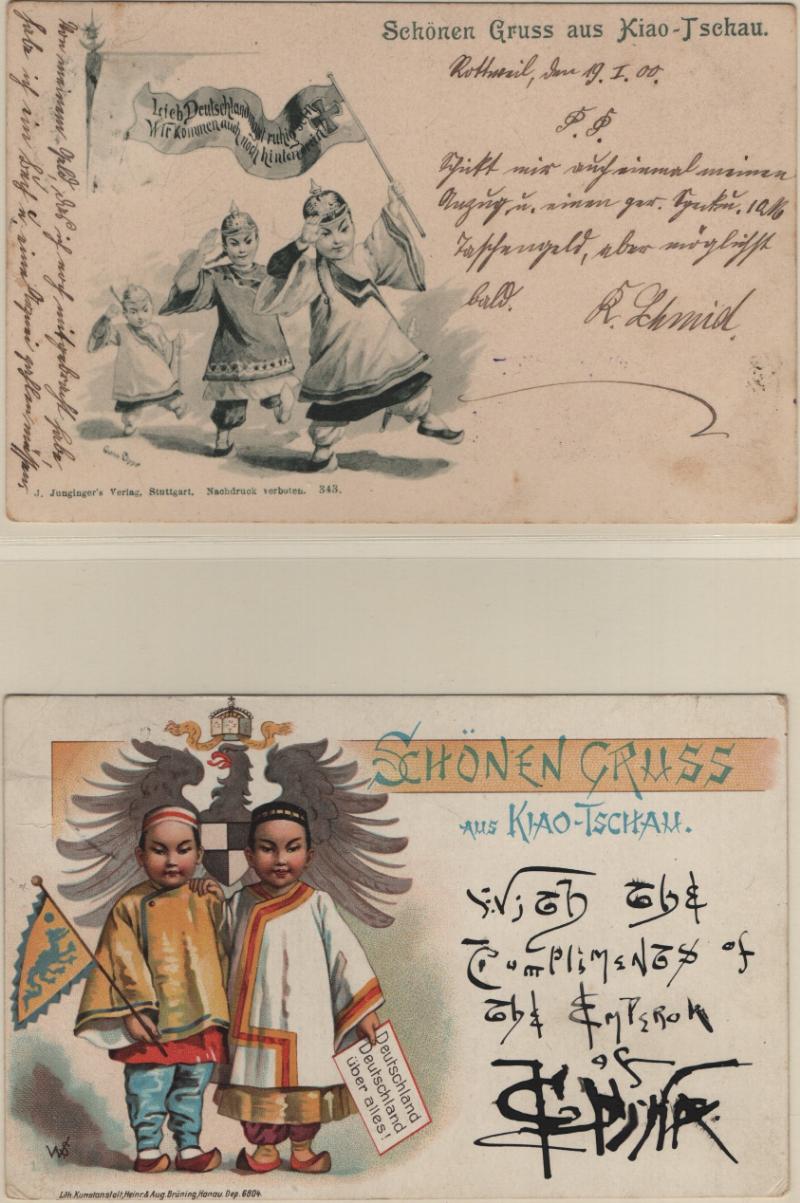 Schönen Gruss aus Kiao-Tschau.
Rottweil, den 19. I. 00.
P. P.
Schickt mir auch einmal meinen
Anzug u. einen ger. Speck u. 10 M
Taschengeld, aber möglichst
bald. K. Schmid.
Lieb Deutschland magst ruhig sein
Wir kommen auch noch hinterdrein
Von meinem Geld, das ich noch mitgebracht habe,
habe ich ein Buch u. eine
J. Junginger's Verlag, Stuttgart. Nachdruck verboten. 343.
SCHÖNEN GRUSS
AUS KIAO-TSCHAU.
With The
Compliments of
The Emperor
of
China.
Deutschland
Deutschland
über alles!
Lith. Kunstanstalt, Heinr. & Aug. Brüning, Hanau. Dep. 6804.